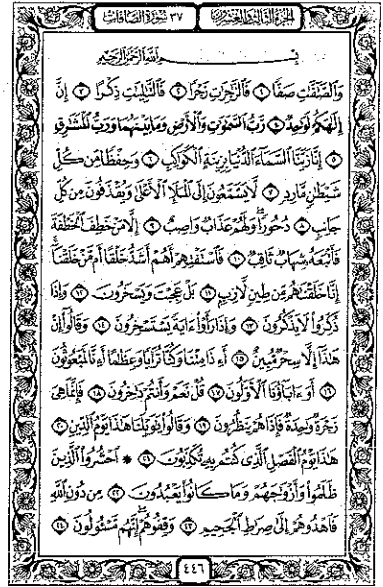 الجزء الثالث والعشرون ٣٧ سورة الصافات
بسم الله الرحمن الرحيم
وَالصَّٰٓفَّٰتِ صَفّٗا ١ فَالزَّٰجِرَٰتِ زَجۡرٗا ٢ فَالتَّٰلِيَٰتِ ذِكۡرًا ٣ إِنَّ
إِلَٰهَكُمۡ لَوَٰحِدٞ ٤ رَّبُّ السَّمَٰوَٰتِ وَالۡأَرۡضِ وَمَا بَيۡنَهُمَا وَرَبُّ الۡمَشَٰرِقِ
٥ إِنَّا زَيَّنَّا السَّمَآءَ الدُّنۡيَا بِزِينَةٍ الۡكَوَاكِبِ ٦ وَحِفۡظٗا مِّن كُلِّ
شَيۡطَٰنٖ مَّارِدٖ ٧ لَّا يَسَّمَّعُونَ إِلَى الۡمَلَإِ الۡأَعۡلَىٰ وَيُقۡذَفُونَ مِن كُلِّ
جَانِبٖ ٨ دُحُورٗاۖ وَلَهُمۡ عَذَابٞ وَاصِبٌ ٩ إِلَّا مَنۡ خَطِفَ الۡخَطۡفَةَ
فَأَتۡبَعَهُۥ شِهَابٞ ثَاقِبٞ ١٠ فَاسۡتَفۡتِهِمۡ أَهُمۡ أَشَدُّ خَلۡقًا أَم مَّنۡ خَلَقۡنَآۚ
إِنَّا خَلَقۡنَٰهُم مِّن طِينٖ لَّازِبِۭ ١١ بَلۡ عَجِبۡتَ وَيَسۡخَرُونَ ١٢ وَإِذَا
ذُكِّرُواْ لَا يَذۡكُرُونَ ١٣ وَإِذَا رَأَوۡاْ ءَايَةٗ يَسۡتَسۡخِرُونَ ١٤ وَقَالُوٓاْ إِنۡ
هَٰذَآ إِلَّا سِحۡرٞ مُّبِينٌ ١٥ أَءِذَا مِتۡنَا وَكُنَّا تُرَابٗا وَعِظَٰمًا أَءِنَّا لَمَبۡعُوثُونَ
١٦ أَوَءَابَآؤُنَا الۡأَوَّلُونَ ١٧ قُلۡ نَعَمۡ وَأَنتُمۡ دَٰخِرُونَ ١٨ فَإِنَّمَا هِيَ
زَجۡرَةٞ وَٰحِدَةٞ فَإِذَا هُمۡ يَنظُرُونَ ١٩ وَقَالُواْ يَٰوَيۡلَنَا هَٰذَا يَوۡمُ الدِّينِ ٢٠
هَٰذَا يَوۡمُ الۡفَصۡلِ الَّذِي كُنتُم بِهِۦ تُكَذِّبُونَ ٢١ * احۡشُرُواْ الَّذِينَ
ظَلَمُواْ وَأَزۡوَٰجَهُمۡ وَمَا كَانُواْ يَعۡبُدُونَ ٢٢ مِن دُونِ اللَّهِ
فَاهۡدُوهُمۡ إِلَىٰ صِرَٰطِ الۡجَحِيمِ ٢٣ وَقِفُوهُمۡۖ إِنَّهُم مَّسۡـُٔولُونَ ٢٤
٤٤٦